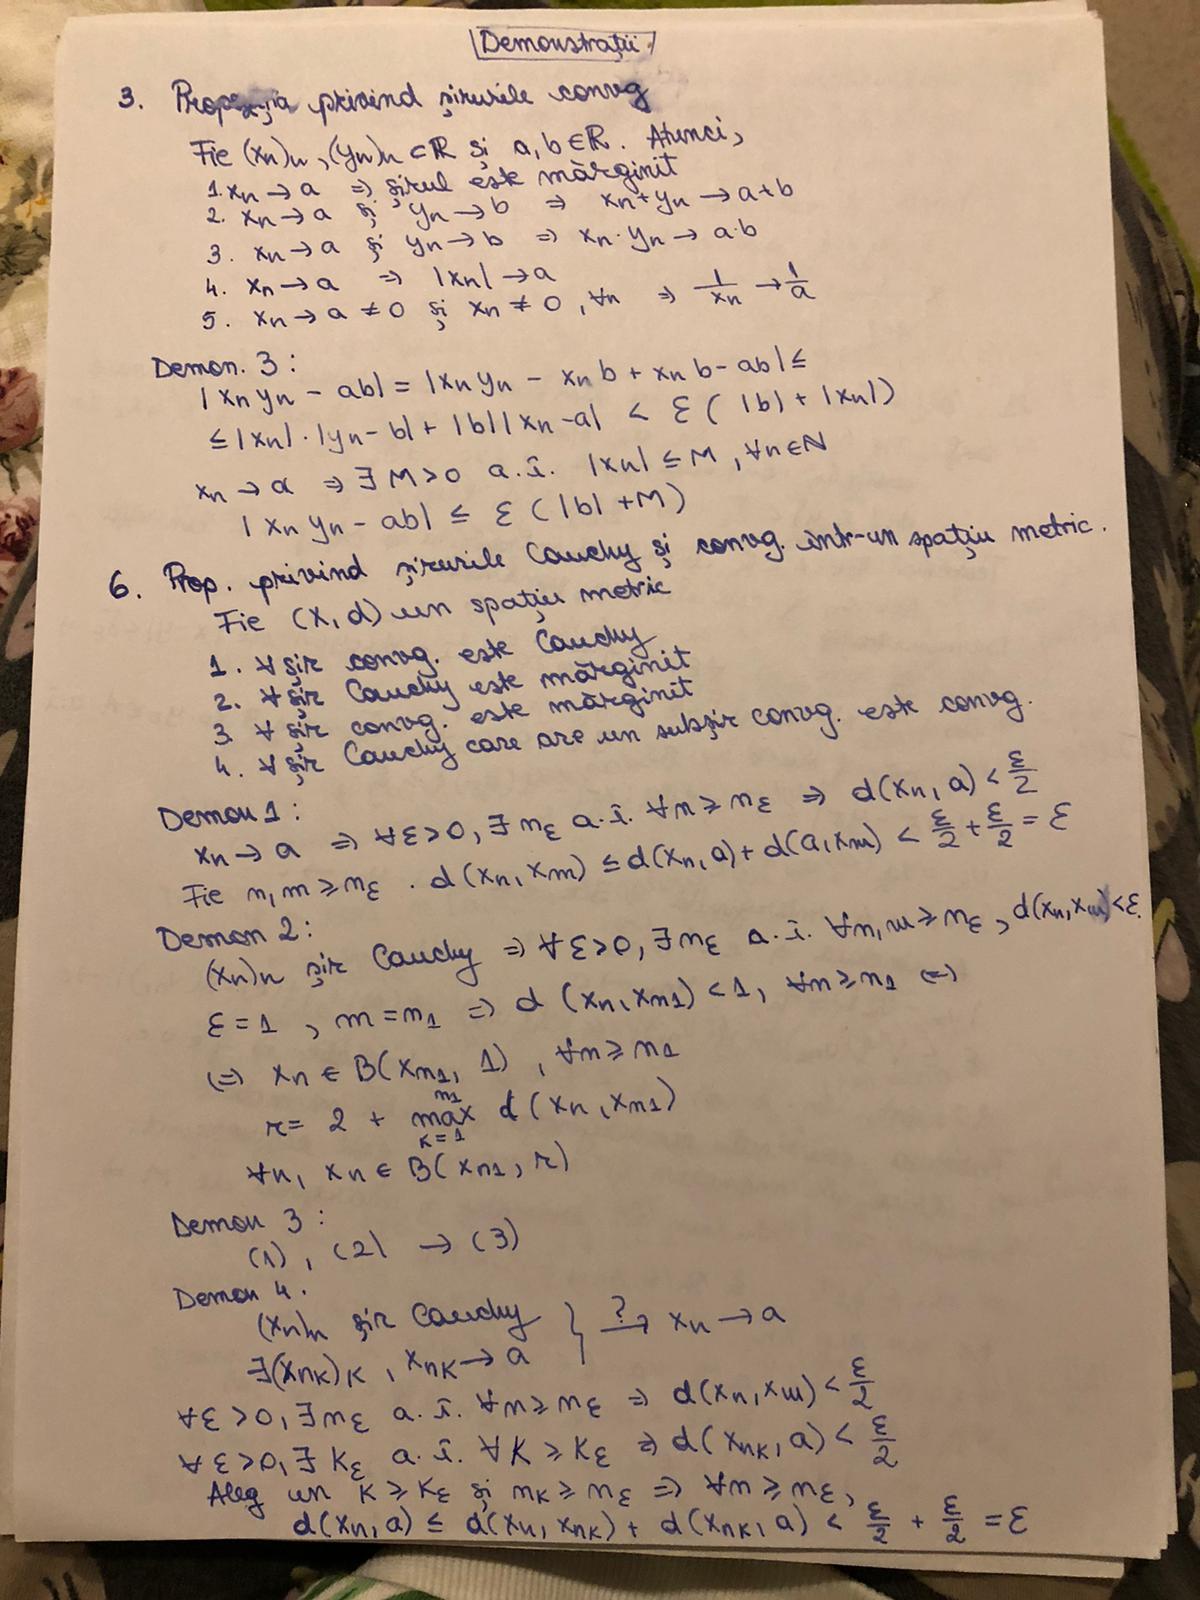 Demonstrații
3. Propoziția privind șirurile convg
Fie (xn)n, (yn)n ⊂ ℝ și a, b ∈ ℝ. Atunci,
1. xn → a ⇒ șirul este mărginit
2. xn → a și yn → b ⇒ xn + yn → a + b
3. xn → a și yn → b ⇒ xn · yn → a·b
4. xn → a ⇒ |xn| → a
5. xn → a ≠ 0 și xn ≠ 0, ∀n ⇒ 1/xn → 1/a
Demon. 3:
|xn yn - ab| = |xn yn - xn b + xn b - ab| ≤
≤ |xn| · |yn - b| + |b| |xn - a| < ε ( |b| + |xn| )
xn → a ⇒ ∃ M > 0 a.î. |xn| ≤ M, ∀n ∈ ℕ
|xn yn - ab| ≤ ε ( |b| + M )
6. Prop. privind șirurile Cauchy și convg. într-un spațiu metric.
Fie (X, d) un spațiu metric
1. ∀ șir convg. este Cauchy
2. ∀ șir Cauchy este mărginit
3 ∀ șir convg. este mărginit
4. ∀ șir Cauchy care are un subșir convg. este convg.
Demon 1:
xn → a ⇒ ∀ε > 0, ∃ nε a.î. ∀n ≥ nε ⇒ d(xn, a) < ε/2
Fie n, m ≥ nε . d(xn, xm) ≤ d(xn, a) + d(a, xm) < ε/2 + ε/2 = ε
Demon 2:
(xn)n șir Cauchy ⇒ ∀ε > 0, ∃ nε a.î. ∀n, m ≥ nε, d(xn, xm) < ε.
ε = 1, m = n1 ⇒ d (xn, xn1) < 1, ∀n ≥ n1 (⇒)
(⇒) xn ∈ B(xn1, 1), ∀n ≥ n1
r = 2 + max_{k=1}^{n1} d (xn, xn1)
∀n, xn ∈ B(xn1, r)
Demon 3:
(1), (2) → (3)
Demon 4.
(xn)n șir Cauchy } ?→ xn → a
∃(xnk)k, xnk → a
∀ε > 0, ∃ nε a.î. ∀n ≥ nε ⇒ d(xn, xm) < ε/2
∀ε > 0, ∃ kε a.î. ∀k ≥ kε ⇒ d(xnk, a) < ε/2
Aleg un k ≥ kε și nk ≥ nε ⇒ ∀n ≥ nε,
d(xn, a) ≤ d(xn, xnk) + d(xnk, a) < ε/2 + ε/2 = ε